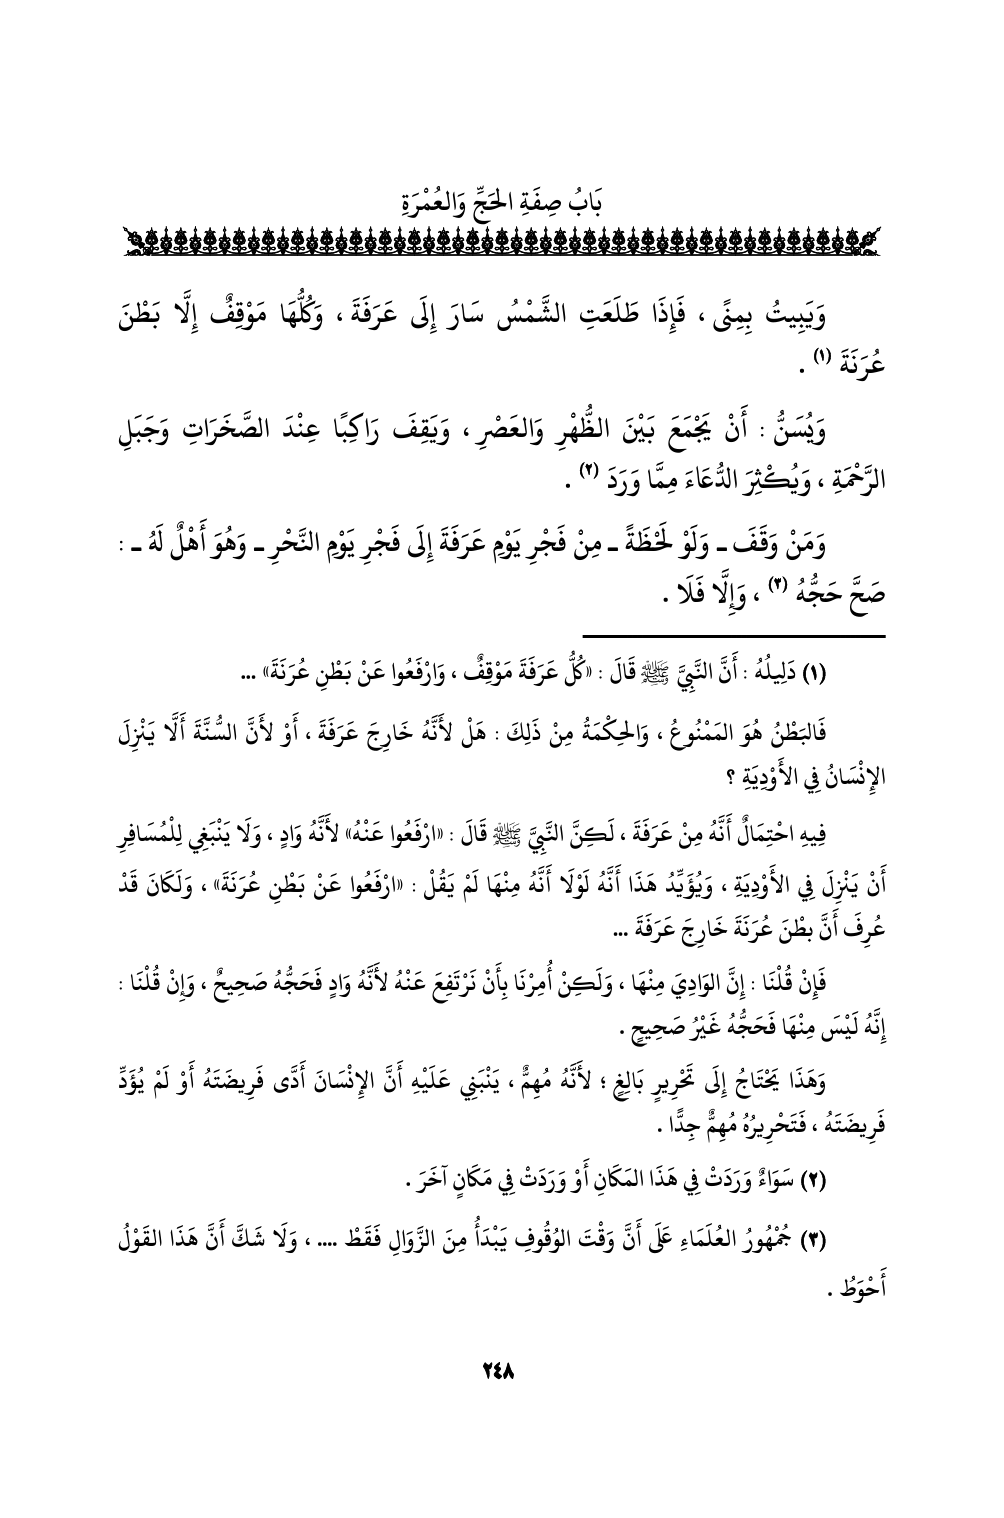 بَابُ صِفَةِ الحَجِّ وَالعُمْرَةِ
وَيَبِيتُ بِمِنًى ، فَإِذَا طَلَعَتِ الشَّمْسُ سَارَ إِلَى عَرَفَةَ ، وَكُلُّهَا مَوْقِفٌ إِلَّا بَطْنَ
عُرَنَةَ (١) .
وَيُسَنُّ : أَنْ يَجْمَعَ بَيْنَ الظُّهْرِ وَالعَصْرِ ، وَيَقِفَ رَاكِبًا عِنْدَ الصَّخَرَاتِ وَجَبَلِ
الرَّحْمَةِ ، وَيُكْثِرَ الدُّعَاءَ مِمَّا وَرَدَ (٢) .
وَمَنْ وَقَفَ ـ وَلَوْ لَحْظَةً ـ مِنْ فَجْرِ يَوْمِ عَرَفَةَ إِلَى فَجْرِ يَوْمِ النَّحْرِ ـ وَهُوَ أَهْلٌ لَهُ ـ :
صَحَّ حَجُّهُ (٣) ، وَإِلَّا فَلَا .
(١) دَلِيلُهُ : أَنَّ النَّبِيَّ ﷺ قَالَ : «كُلُّ عَرَفَةَ مَوْقِفٌ ، وَارْفَعُوا عَنْ بَطْنِ عُرَنَةَ» ...
فَالبَطْنُ هُوَ المَمْنُوعُ ، وَالحِكْمَةُ مِنْ ذَلِكَ : هَلْ لأَنَّهُ خَارِجَ عَرَفَةَ ، أَوْ لأَنَّ السُّنَّةَ أَلَّا يَنْزِلَ
الإِنْسَانُ فِي الأَوْدِيَةِ ؟
فِيهِ احْتِمَالٌ أَنَّهُ مِنْ عَرَفَةَ ، لَكِنَّ النَّبِيَّ ﷺ قَالَ : «ارْفَعُوا عَنْهُ» لأَنَّهُ وَادٍ ، وَلَا يَنْبَغِي لِلْمُسَافِرِ
أَنْ يَنْزِلَ فِي الأَوْدِيَةِ ، وَيُؤَيِّدُ هَذَا أَنَّهُ لَوْلَا أَنَّهُ مِنْهَا لَمْ يَقُلْ : «ارْفَعُوا عَنْ بَطْنِ عُرَنَةَ» ، وَلَكَانَ قَدْ
عُرِفَ أَنَّ بطْنَ عُرَنَةَ خَارِجَ عَرَفَةَ ...
فَإِنْ قُلْنَا : إِنَّ الوَادِيَ مِنْهَا ، وَلَكِنْ أُمِرْنَا بِأَنْ نَرْتَفِعَ عَنْهُ لأَنَّهُ وَادٍ فَحَجُّهُ صَحِيحٌ ، وَإِنْ قُلْنَا :
إِنَّهُ لَيْسَ مِنْهَا فَحَجُّهُ غَيْرُ صَحِيحٍ .
وَهَذَا يَحْتَاجُ إِلَى تَحْرِيرٍ بَالِغٍ ؛ لأَنَّهُ مُهِمٌّ ، يَنْبَنِي عَلَيْهِ أَنَّ الإِنْسَانَ أَدَّى فَرِيضَتَهُ أَوْ لَمْ يُؤَدِّ
فَرِيضَتَهُ ، فَتَحْرِيرُهُ مُهِمٌّ جِدًّا .
(٢) سَوَاءٌ وَرَدَتْ فِي هَذَا المَكَانِ أَوْ وَرَدَتْ فِي مَكَانٍ آخَرَ .
(٣) جُمْهُورُ العُلَمَاءِ عَلَى أَنَّ وَقْتَ الوُقُوفِ يَبْدَأُ مِنَ الزَّوَالِ فَقَطْ .... ، وَلَا شَكَّ أَنَّ هَذَا القَوْلُ
أَحْوَطُ .
٢٤٨